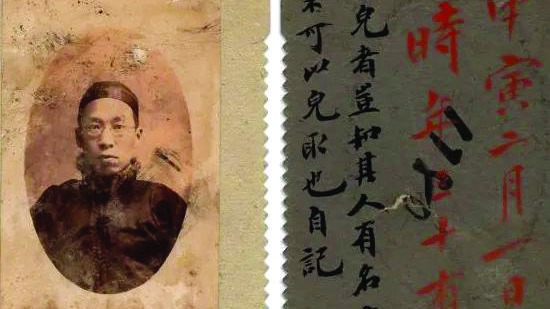 甲寅二月一日
時年二十有
兒者豈知其人有名
可以兒取也自記